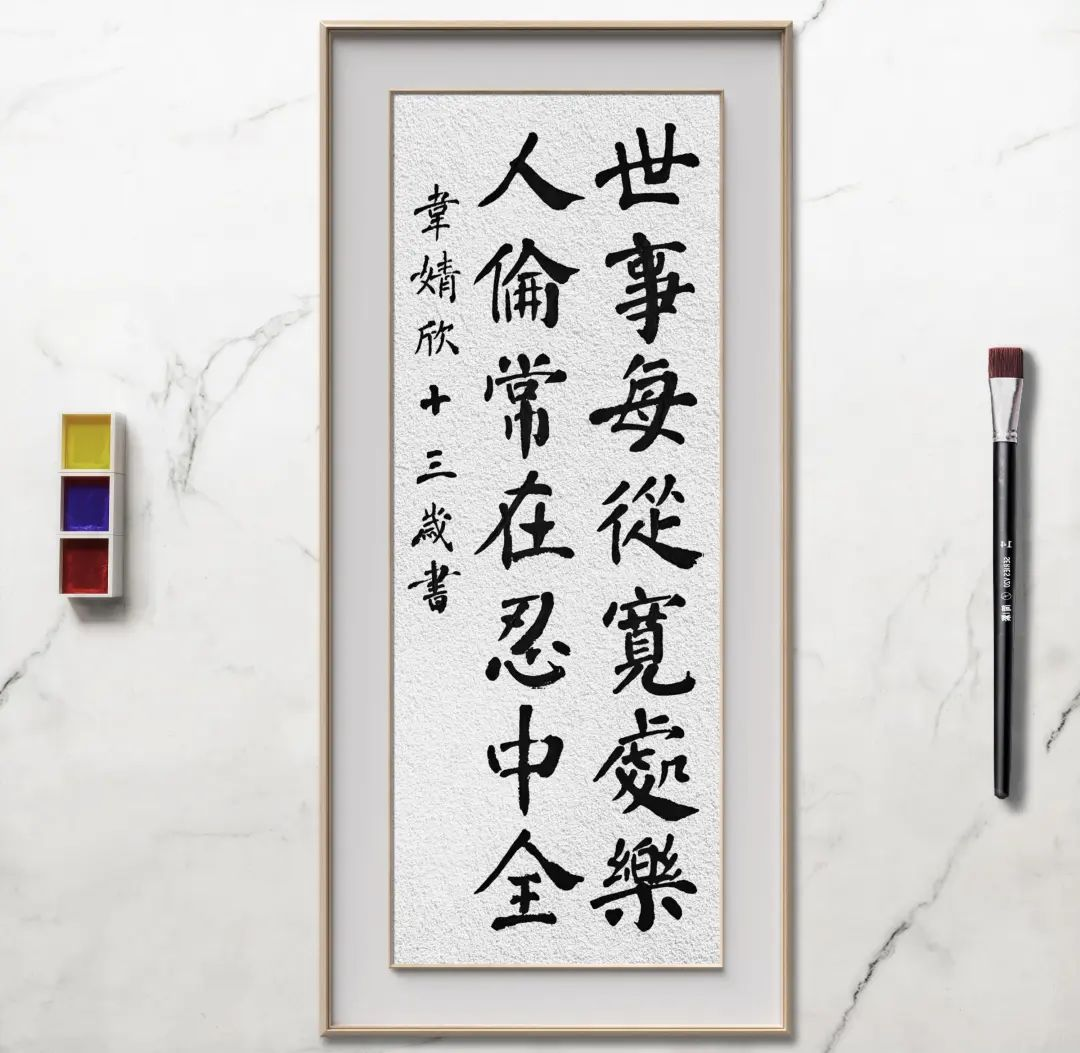 世事每從寬處樂
人倫常在忍中全
韋婧欣十三歲書